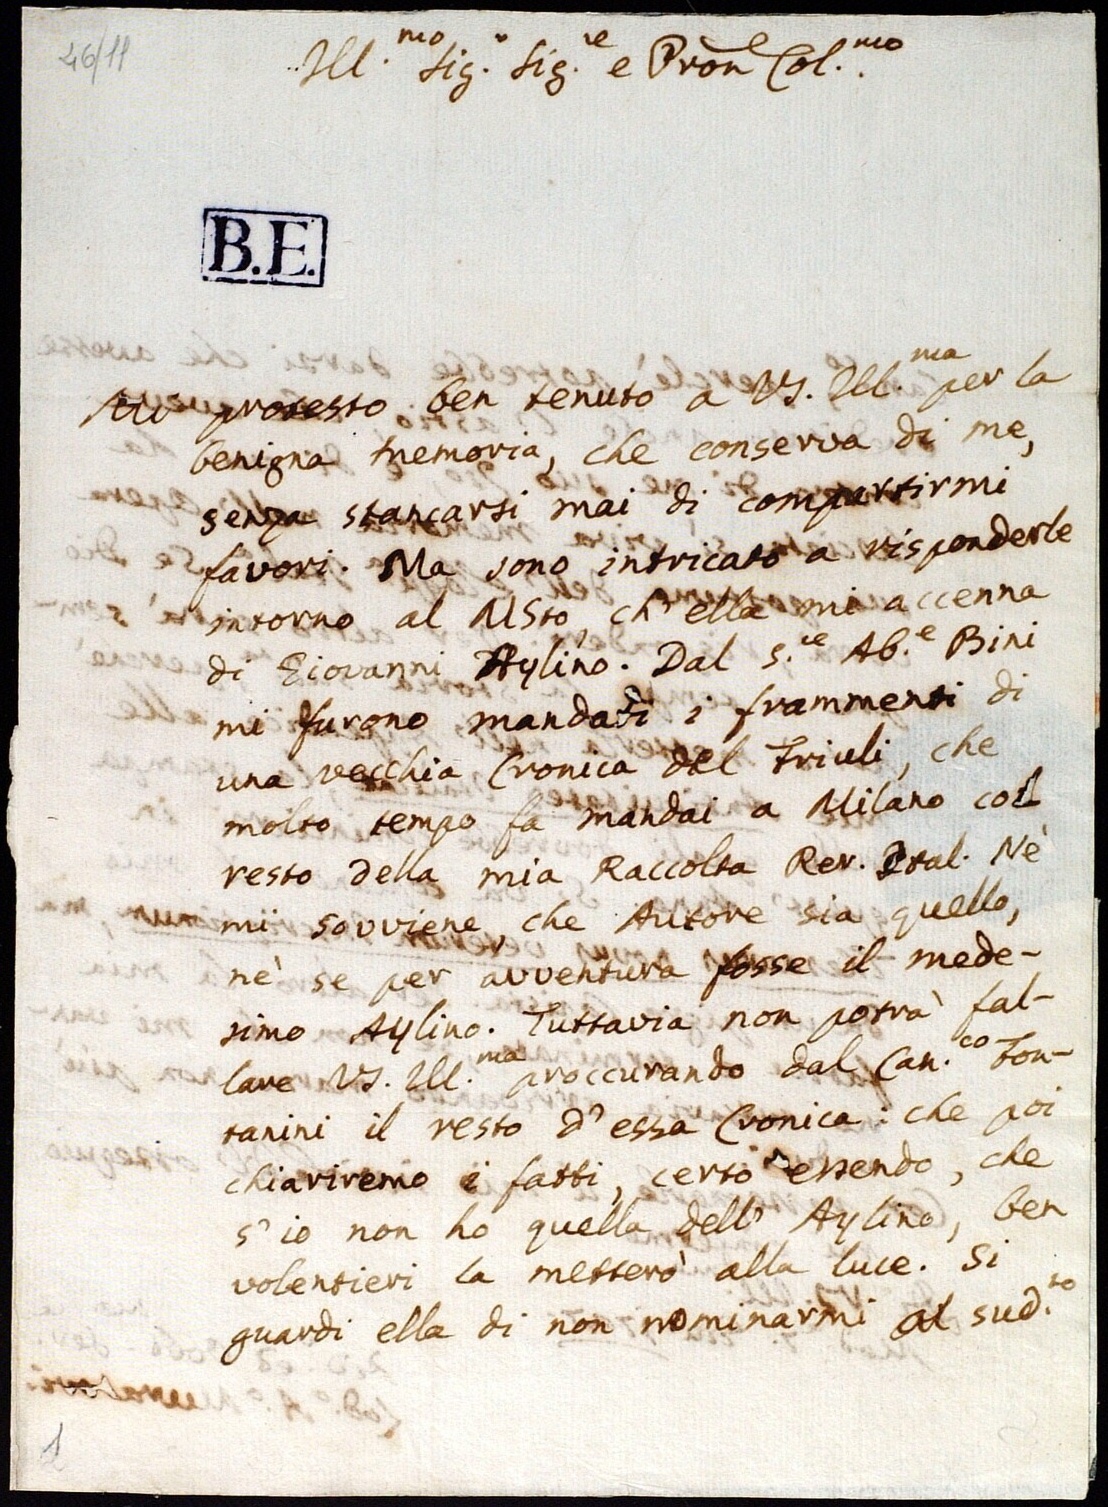 46/11
Ill.mo Sig.r Sig.re e Pron Col.mo
B.E.
Mi protesto ben tenuto a VS. Ill.ma per la
benigna memoria, che conserva di me,
senza stancarsi mai di compartirmi
favori. Ma sono intricato a risponderle
intorno al MSto, ch' ella mi accenna
di Giovanni Aylino. Dal S.re Ab.e Bini
mi furono mandati i frammenti di
una vecchia Cronica del Friuli, che
molto tempo fa mandai a Milano col
resto della mia Raccolta Rer. Ital. Nè
mi sovviene, che Autore sia quello,
nè se per avventura fosse il mede-
simo Aylino. Tuttavia non potrà fal-
lare VS. Ill.ma proccurando dal Can.co Fon-
tanini il resto d' essa Cronica: che poi
chiariremo i fatti, certo essendo, che
s' io non ho quella dell' Aylino, ben
volentieri la metterò alla luce. Si
guardi ella di non nominarmi al sud.to
1